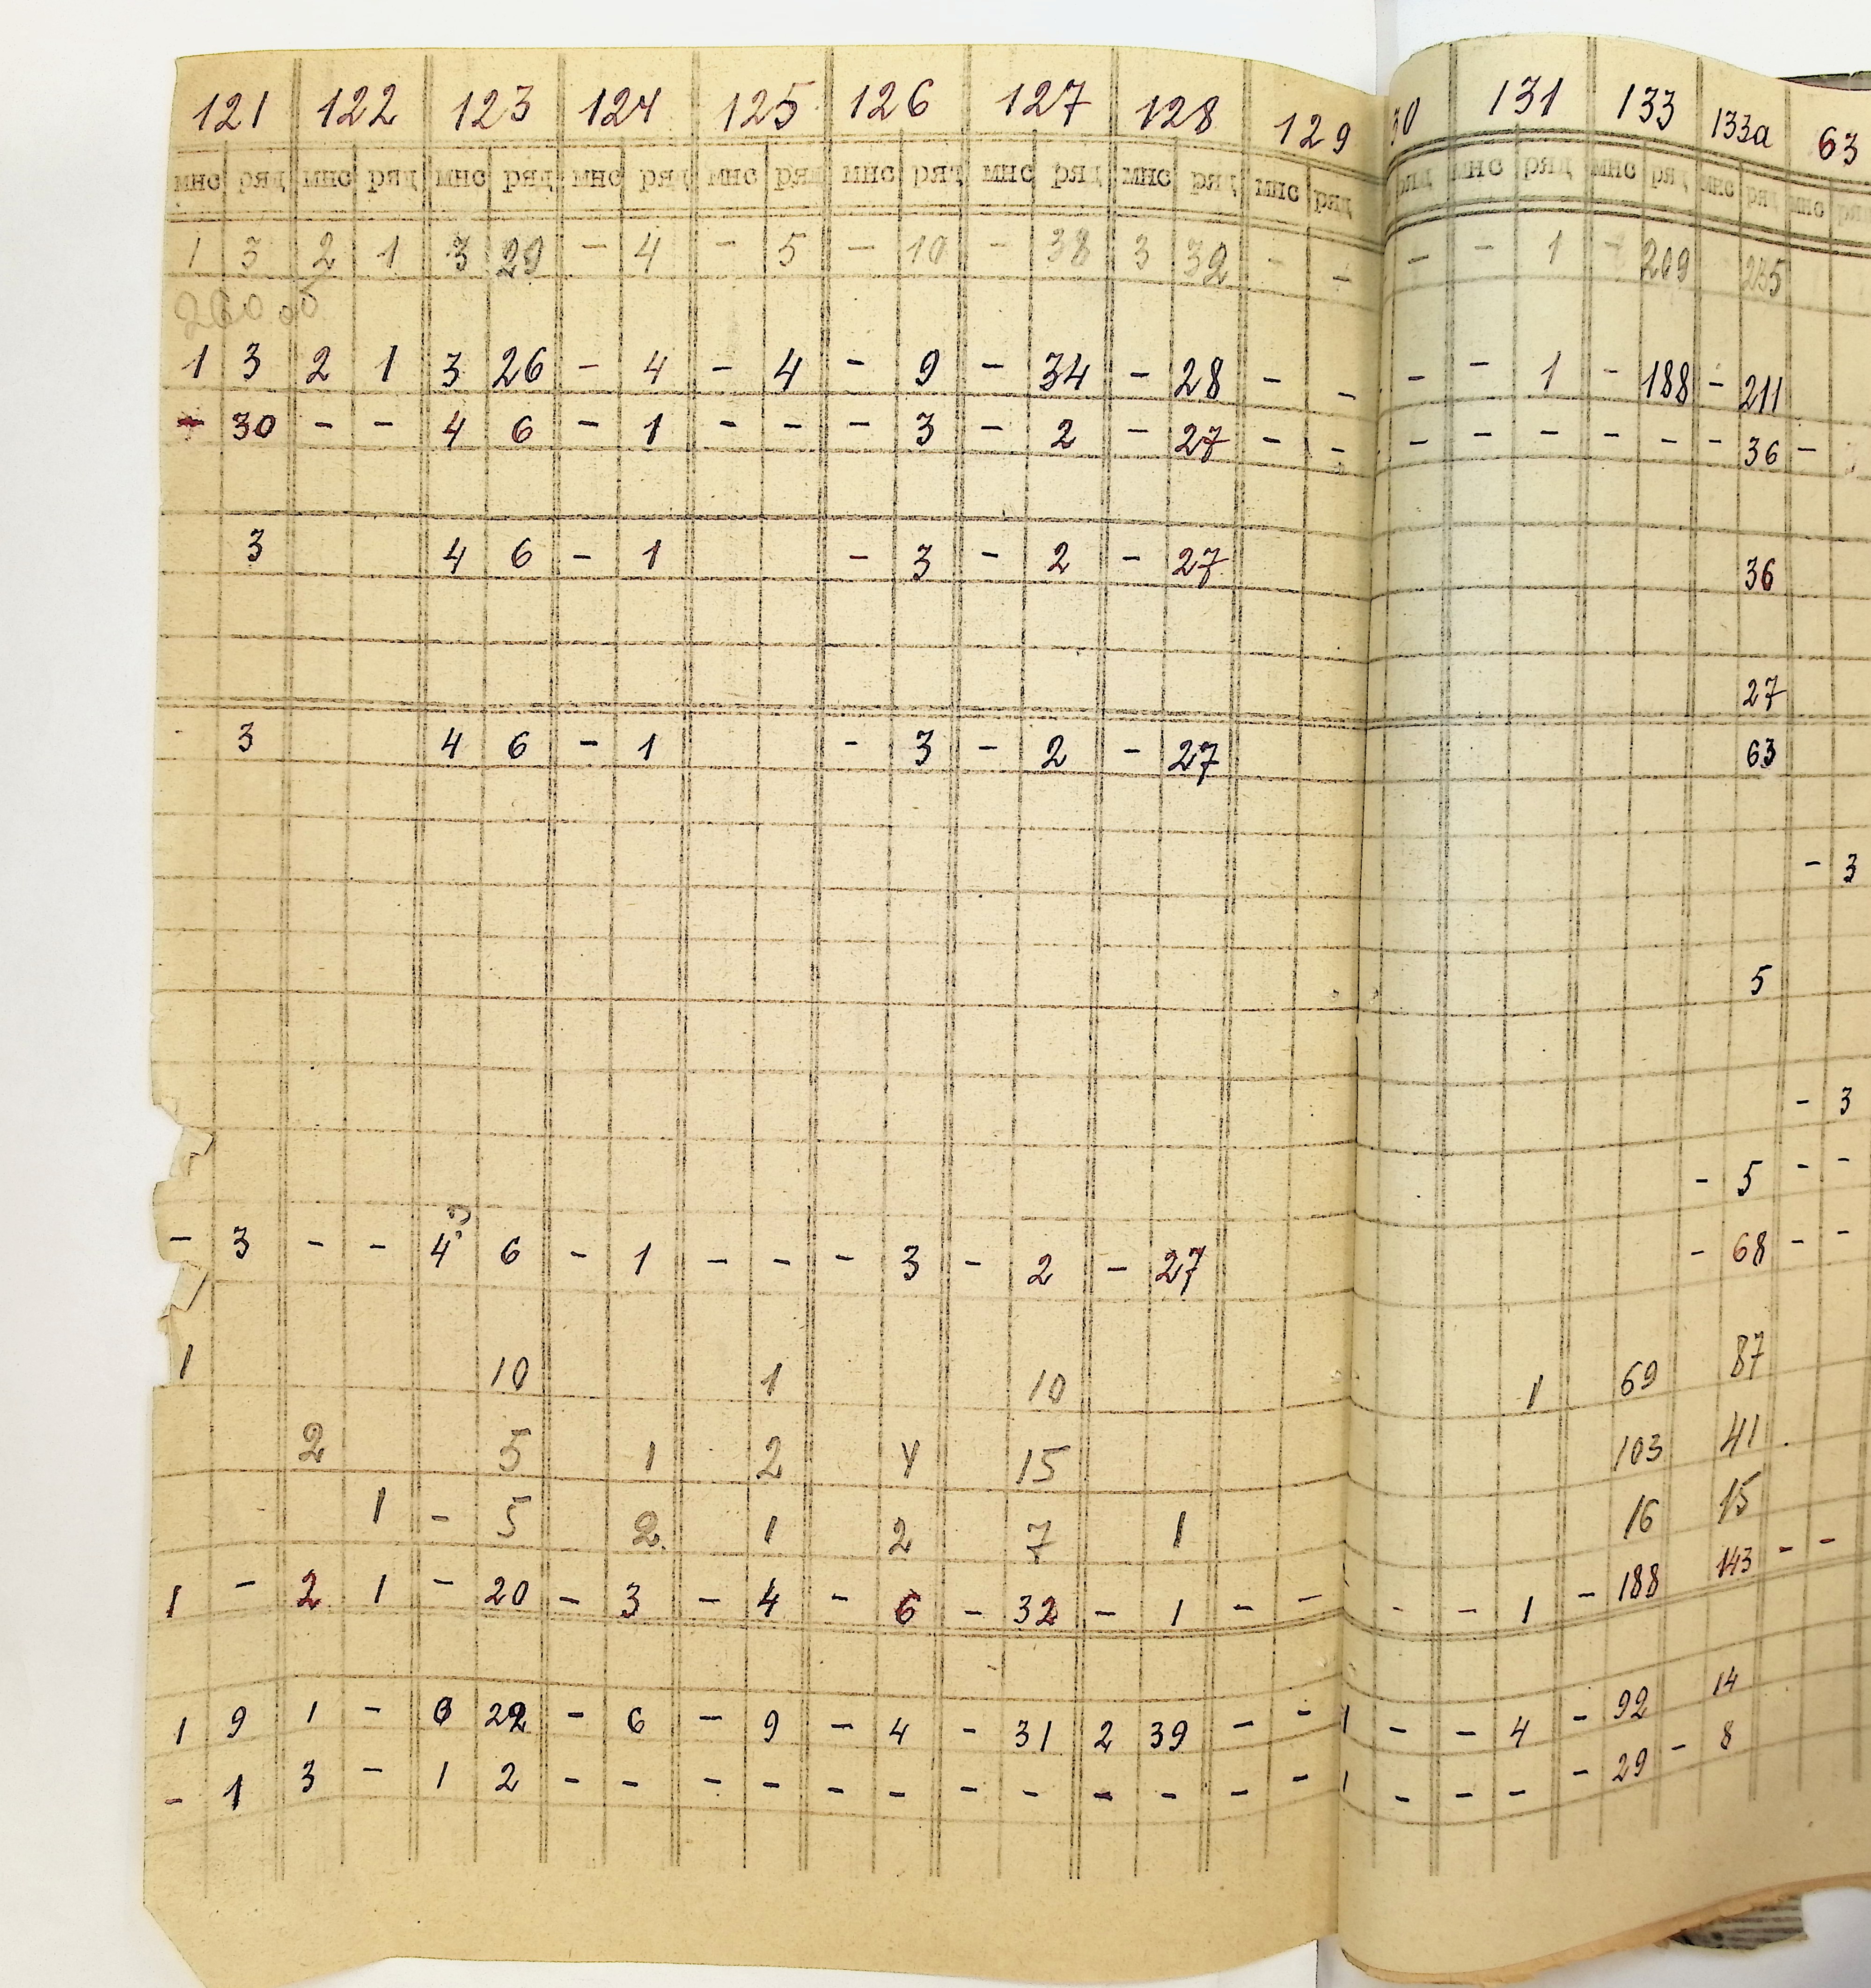 121 122 123 124 125 126 127 128 129 30 131 133 133а 63
мнс ряд мнс ряд мнс ряд мнс ряд мнс ряд мнс ряд мнс ряд мнс ряд мнс ряд ряд мнс ряд мнс ряд мнс ряд мнс ряд
1 3 2 1 3 29 - 4 - 5 - 10 - 38 3 32 - - - - 1 - 209 235
1 3 2 1 3 26 - 4 - 4 - 9 - 34 - 28 - - - - 1 - 188 - 211
- 30 - - 4 6 - 1 - - - 3 - 2 - 27 - - - - - - - - 36 -
3 4 6 - 1 - 3 - 2 - 27 36
27
3 4 6 - 1 - 3 - 2 - 27 63
- 3
5
- 3
- 5 - -
- 3 - - 4 6 - 1 - - - 3 - 2 - 27 - 68 - -
1 10 1 10 1 69 87
2 5 1 2 4 15 103 41
1 - 5 2 1 2 7 1 16 15
1 - 2 1 - 20 - 3 - 4 - 6 - 32 - 1 - - - - 1 - 188 143 - -
1 9 1 - 6 22 - 6 - 9 - 4 - 31 2 39 - - 1 - - 4 - 92 14
- 1 3 - 1 2 - - - - - - - - - - - - 1 - - - - 29 - 8